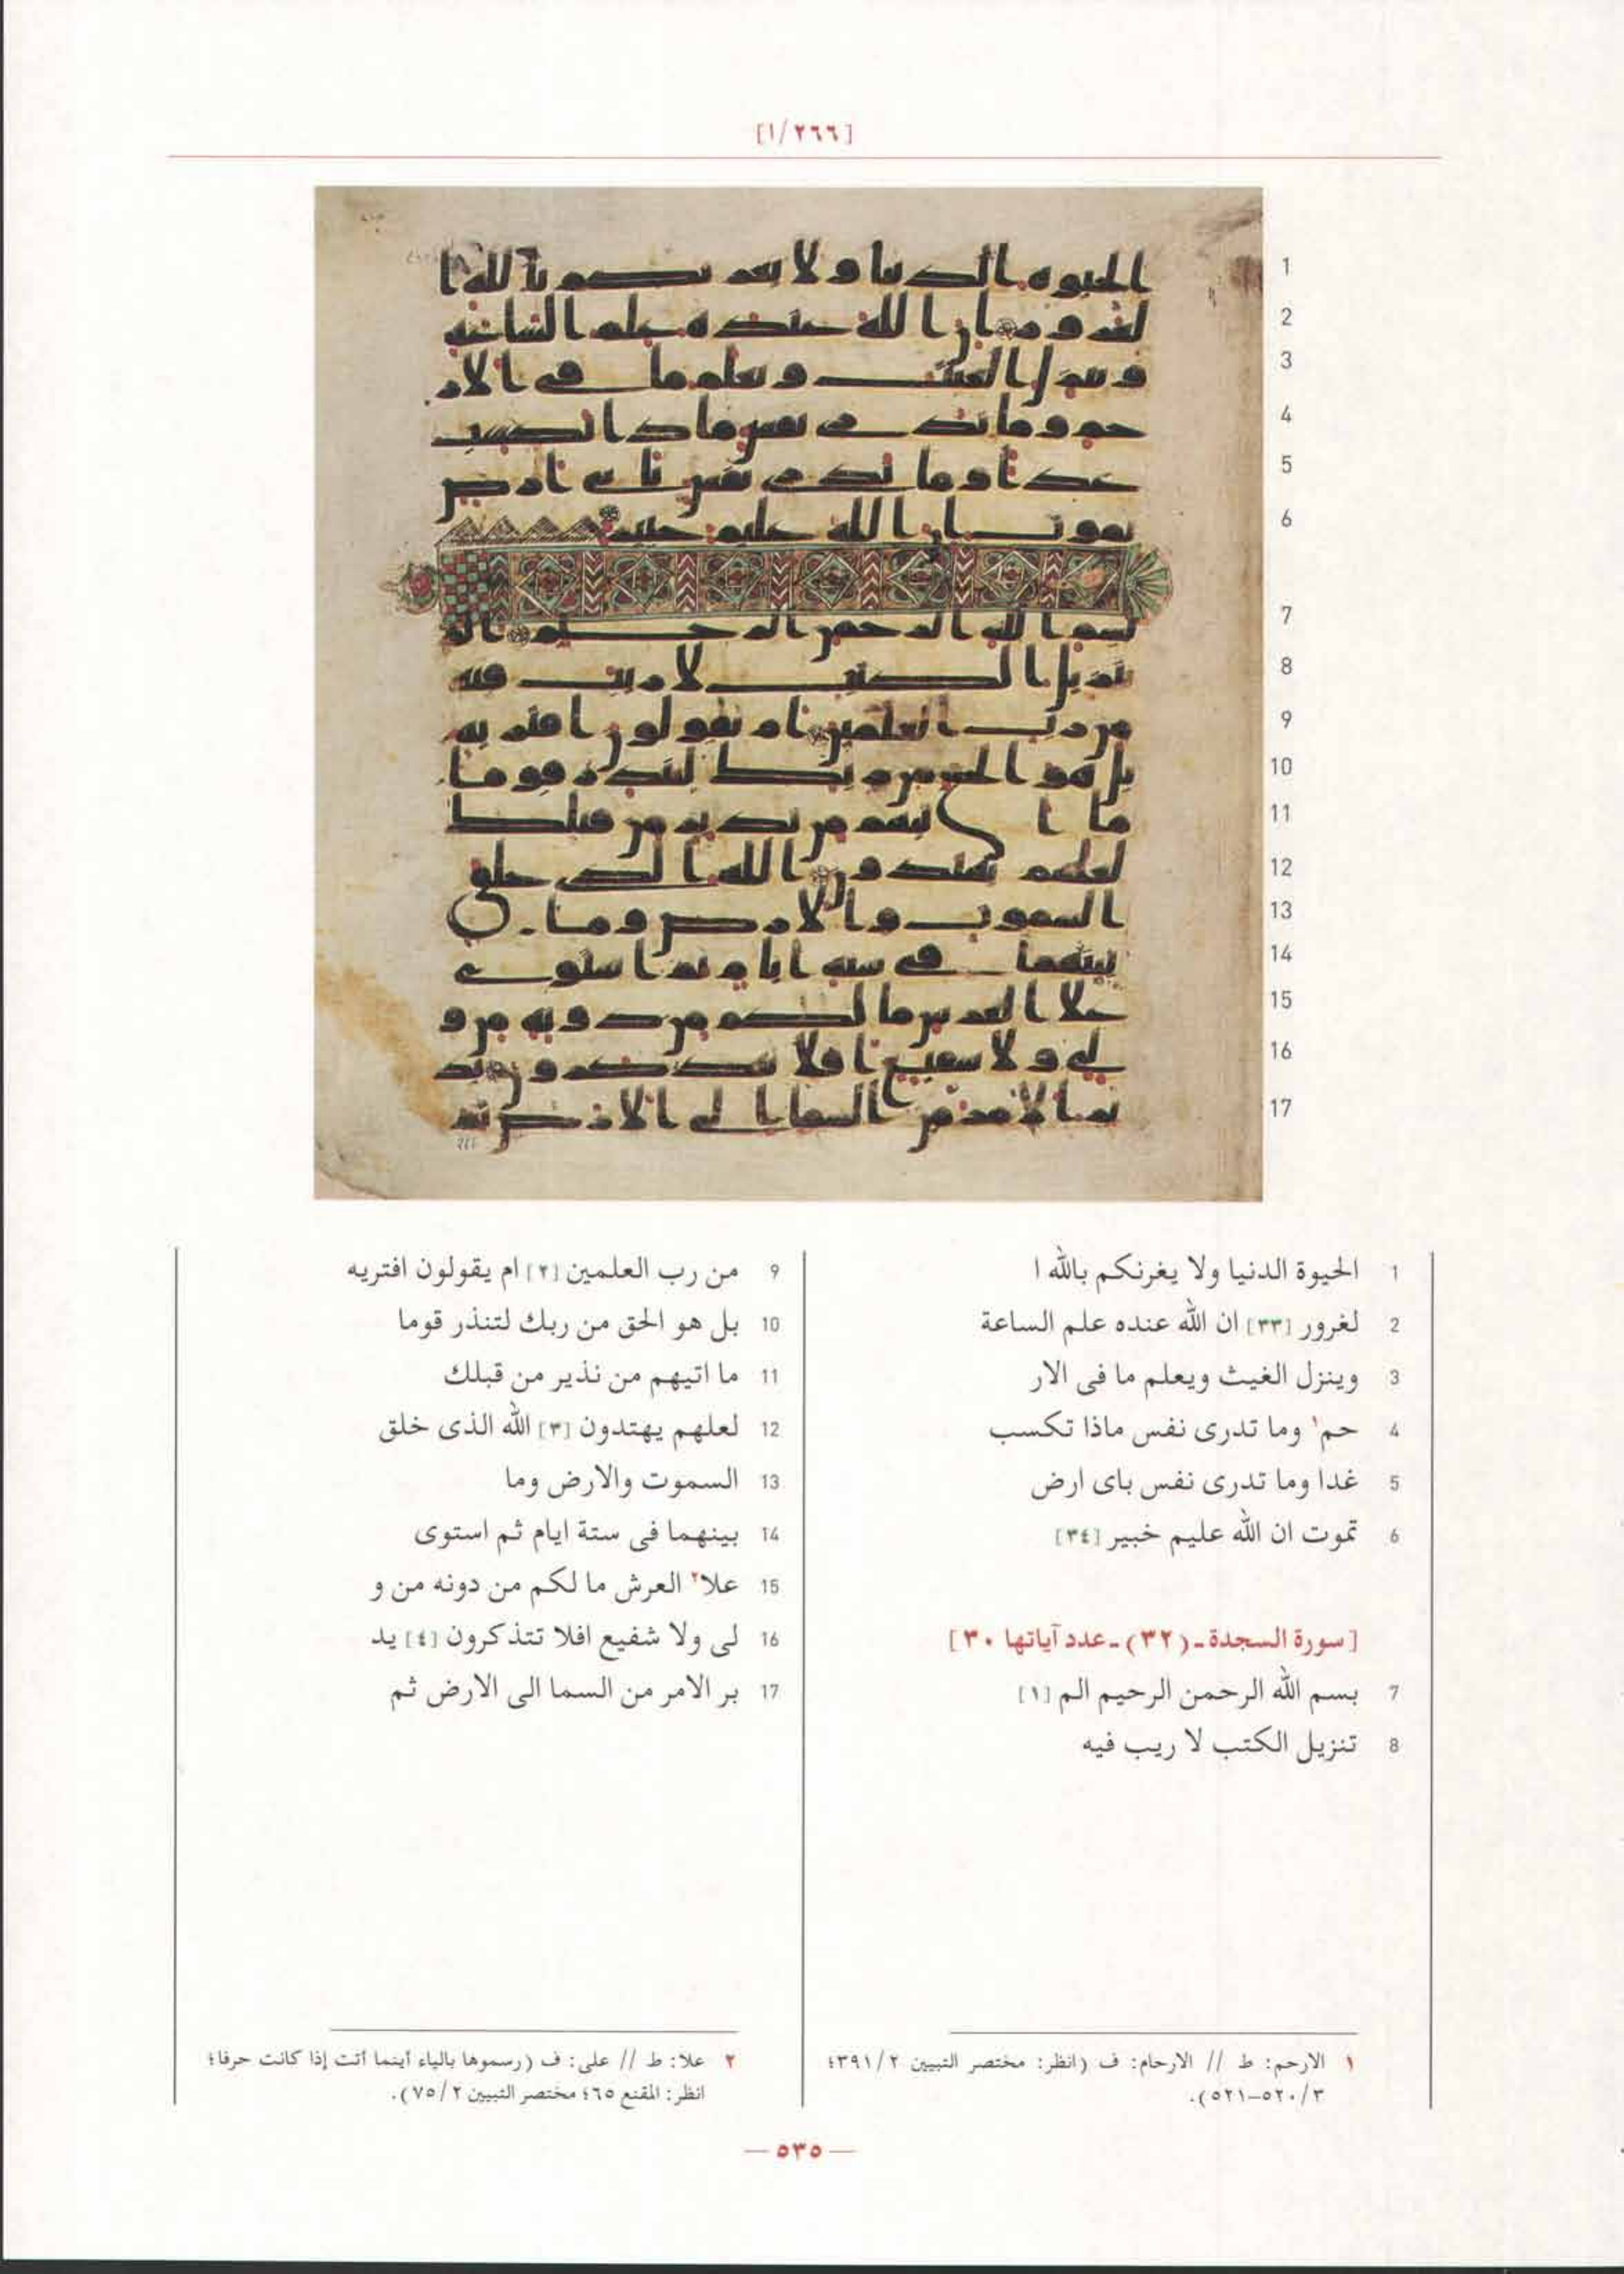 [١/٢٦٦]
1 الحيوة الدنيا ولا يغرنكم بالله ا
2 لغرور [٣٣] ان الله عنده علم الساعة
3 وينزل الغيث ويعلم ما فى الار
4 حم١ وما تدرى نفس ماذا تكسب
5 غدا وما تدرى نفس باى ارض
6 تموت ان الله عليم خبير [٣٤]
[سورة السجدة ـ (٣٢) ـ عدد آياتها ٣٠]
7 بسم الله الرحمن الرحيم الم [١]
8 تنزيل الكتب لا ريب فيه
9 من رب العلمين [٢] ام يقولون افتريه
10 بل هو الحق من ربك لتنذر قوما
11 ما اتيهم من نذير من قبلك
12 لعلهم يهتدون [٣] الله الذى خلق
13 السموت والارض وما
14 بينهما فى ستة ايام ثم استوى
15 علا٢ العرش ما لكم من دونه من و
16 لى ولا شفيع افلا تتذكرون [٤] يد
17 بر الامر من السما الى الارض ثم
١ الارحم: ط // الارحام: ف (انظر: مختصر التبيين ٣٩١/٢؛
٥٢٠/٣–٥٢١).
٢ علا: ط // على: ف (رسموها بالياء أينما أتت إذا كانت حرفا؛
انظر: المقنع ٦٥؛ مختصر التبيين ٧٥/٢).
— ٥٣٥ —